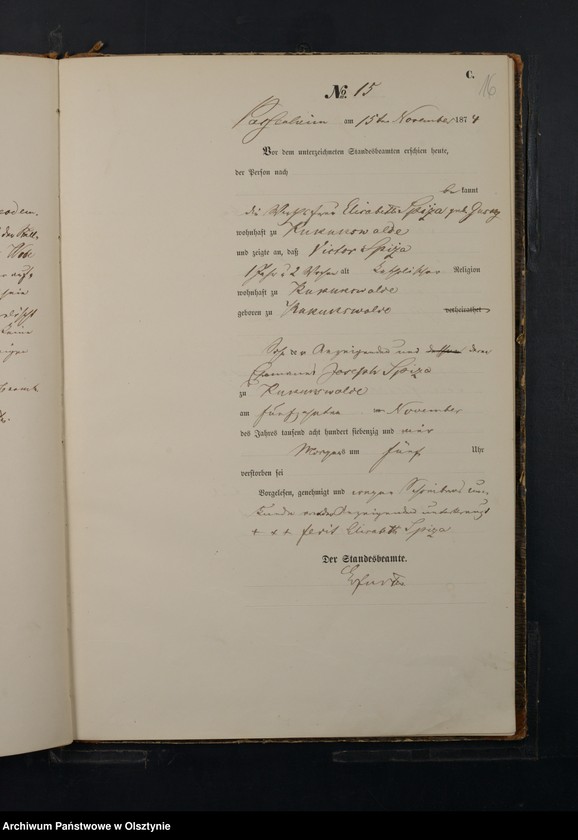 C.
16
No. 15
Passenheim am 15ten November 1874
Vor dem unterzeichneten Standesbeamten erschien heute,
der Person nach
be kannt
die Elisabeth Spiza geb.
wohnhaft zu Kukukswalde
und zeigte an, daß Victor Spiza
1 Jahr 2 Wochen alt Katholischer Religion
wohnhaft zu Kukukswalde
geboren zu Kukukswalde verheirathet
Sohn der Anzeigenden und deren
Ehemannes Joseph Spiza
zu Kukukswalde
am fünfzehnten November
des Jahres tausend acht hundert siebenzig und vier
Morgens um fünf Uhr
verstorben sei
Vorgelesen, genehmigt und wegen Schreibens un-
kunde von der Anzeigenden unterkreuzt
+ + + fecit Elisabeth Spiza
Der Standesbeamte.
Archiwum Państwowe w Olsztynie